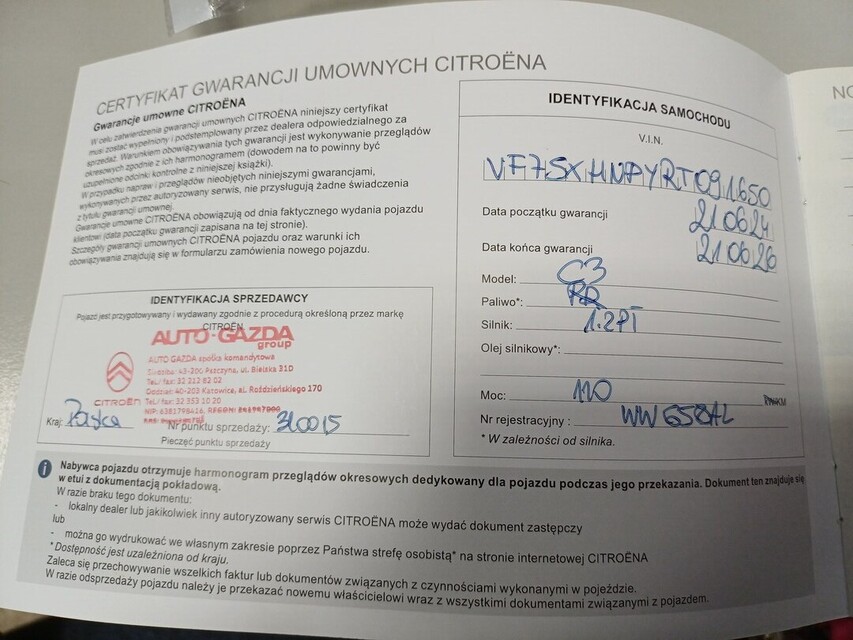 CERTYFIKAT GWARANCJI UMOWNYCH CITROËNA
Gwarancje umowne CITROËNA
W celu zatwierdzenia gwarancji umownych CITROËNA niniejszy certyfikat
musi zostać wypełniony i podstemplowany przez dealera odpowiedzialnego za
sprzedaż. Warunkiem obowiązywania tych gwarancji jest wykonywanie przeglądów
okresowych zgodnie z ich harmonogramem (dowodem na to powinny być
uzupełnione odcinki kontrolne z niniejszej książki).
W przypadku napraw i przeglądów nieobjętych niniejszymi gwarancjami,
wykonywanych przez autoryzowany serwis, nie przysługują żadne świadczenia
z tytułu gwarancji umownej.
Gwarancje umowne CITROËNA obowiązują od dnia faktycznego wydania pojazdu
klientowi (data początku gwarancji zapisana na tej stronie).
Szczegóły gwarancji umownych CITROËNA pojazdu oraz warunki ich
obowiązywania znajdują się w formularzu zamówienia nowego pojazdu.
IDENTYFIKACJA SPRZEDAWCY
Pojazd jest przygotowywany i wydawany zgodnie z procedurą określoną przez markę
CITROËN
AUTO-GAZDA
group
AUTO GAZDA spółka komandytowa
43-200 Pszczyna, ul. Bielska 31D
Tel./fax: 32 212 82 02
Oddział: 40-203 Katowice, al. Roździeńskiego 170
CITROËN Tel./fax 32 353 10 20
NIP: 6381798416,
Kraj: Polska Nr punktu sprzedaży: 310015
Pieczęć punktu sprzedaży
IDENTYFIKACJA SAMOCHODU
V.I.N.
VF7SXHNPYRT091650
Data początku gwarancji 210624
Data końca gwarancji 210626
Model: C3
Paliwo*:
Silnik: 1.2PT
Olej silnikowy*:
Moc: 110 KM
Nr rejestracyjny : WW658AL
* W zależności od silnika.
i Nabywca pojazdu otrzymuje harmonogram przeglądów okresowych dedykowany dla pojazdu podczas jego przekazania. Dokument ten znajduje się
w etui z dokumentacją pokładową.
W razie braku tego dokumentu:
- lokalny dealer lub jakikolwiek inny autoryzowany serwis CITROËNA może wydać dokument zastępczy
lub
- można go wydrukować we własnym zakresie poprzez Państwa strefę osobistą* na stronie internetowej CITROËNA
* Dostępność jest uzależniona od kraju.
Zaleca się przechowywanie wszelkich faktur lub dokumentów związanych z czynnościami wykonanymi w pojeździe.
W razie odsprzedaży pojazdu należy je przekazać nowemu właścicielowi wraz z wszystkimi dokumentami związanymi z pojazdem.